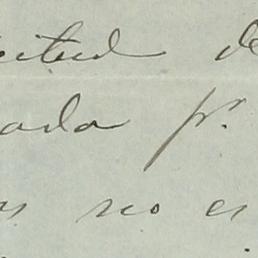 citud de
ada pr.
s no es